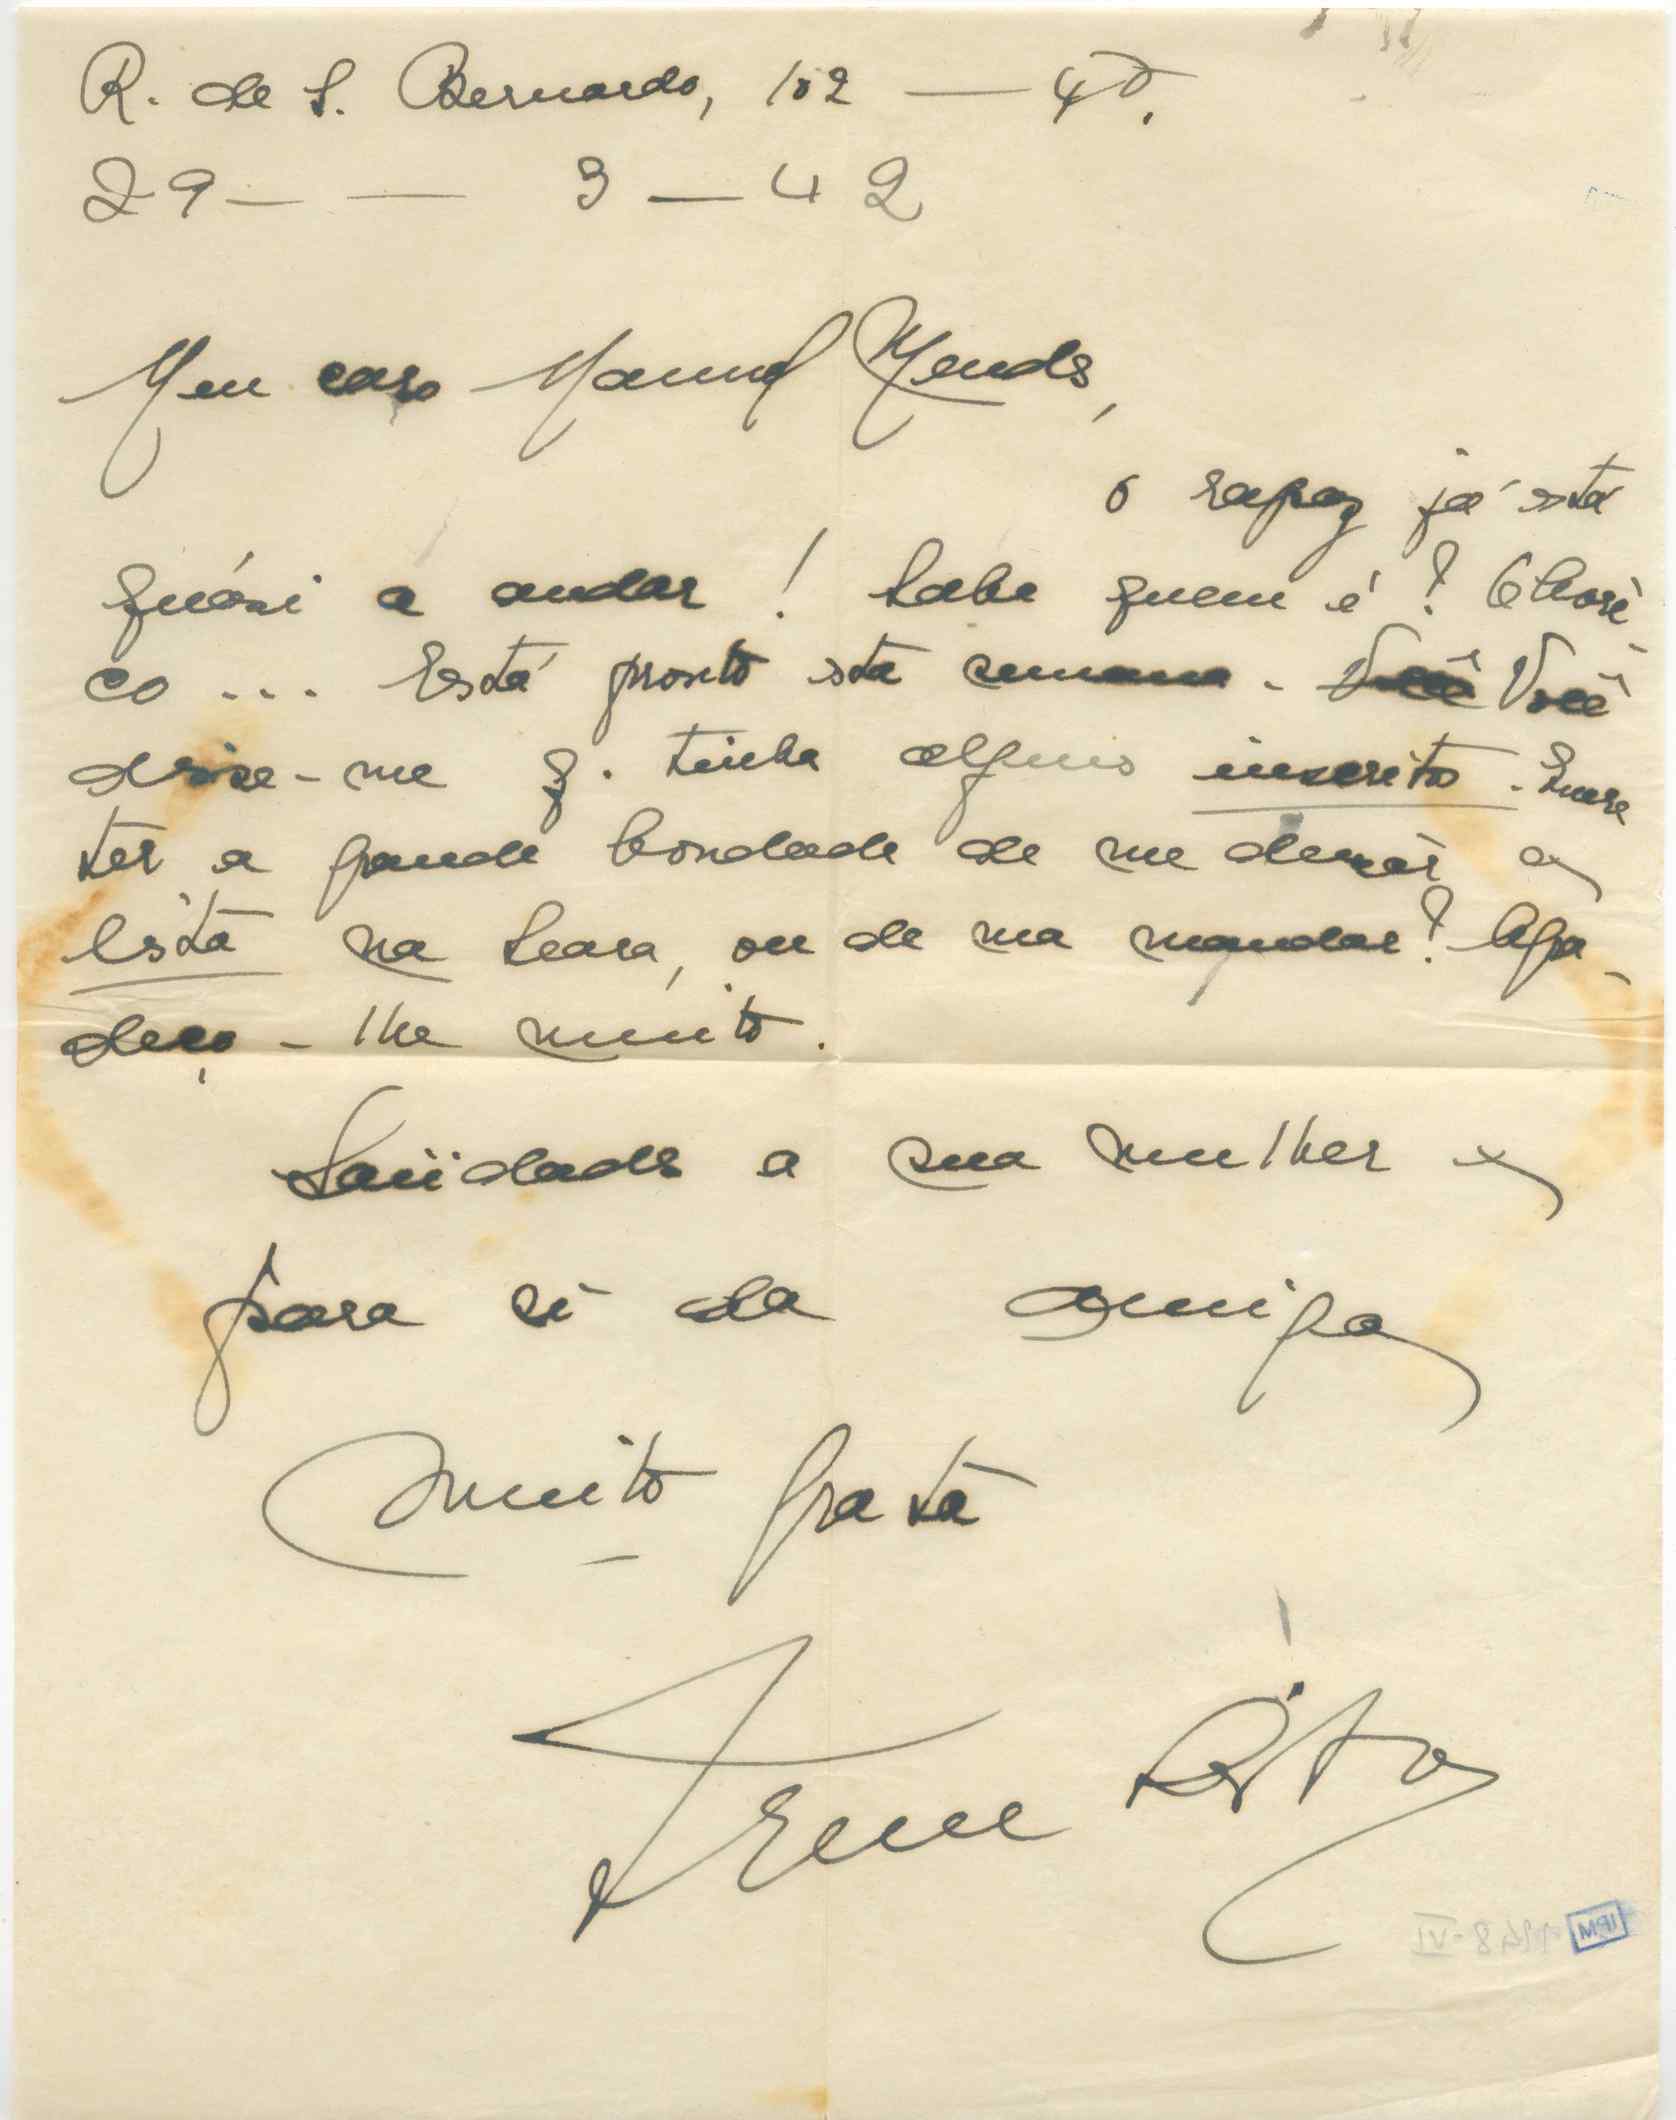 R. de S. Bernardo, 102 — 4º.
29 — — 3 — 42
Meu caro Manuel Mendes,
o rapaz já está
quási a andar! Sabe quem é? Chori-
co... Está pronto esta semana. Você
disse-me q. tinha alguns inscritos. Quere
ter a grande bondade de me deixar a
lista na Seara, ou de ma mandar? Agra-
deço-lhe muito.
Saüdades a sua mulher e
para si da amiga
muito grata
Irene Lisboa